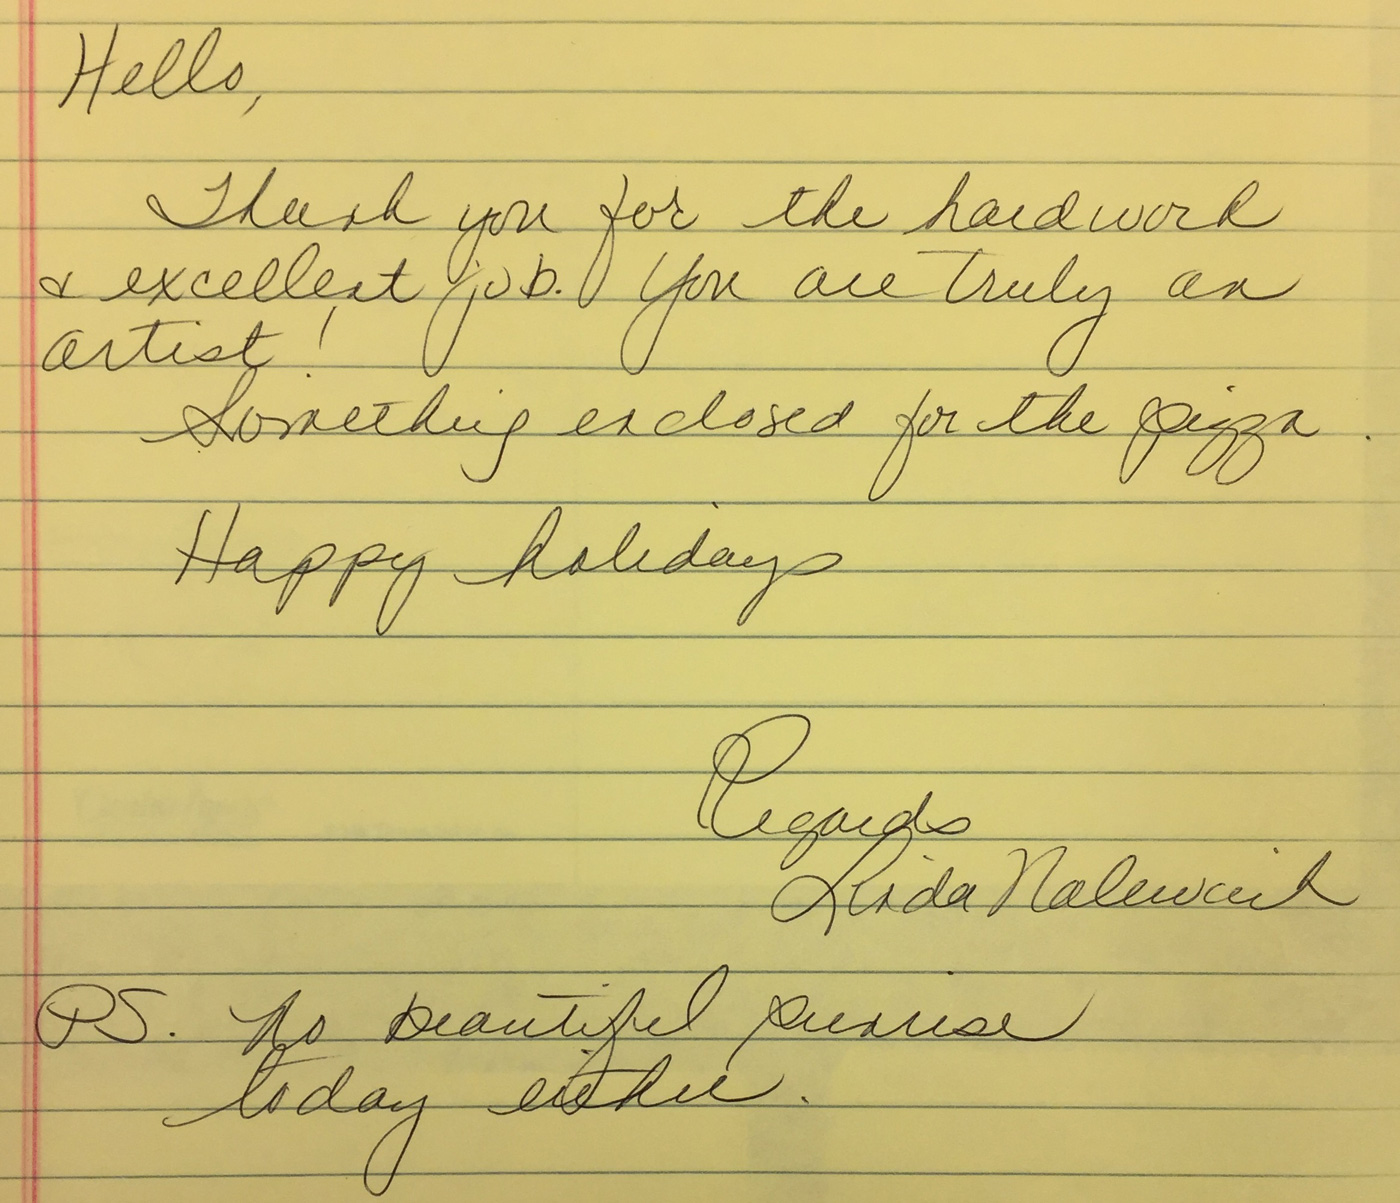 Hello,
Thank you for the hardwork
& excellent job. You are truly an
artist!
Something enclosed for the pizza.
Happy holidays
Regards
Linda
PS. No beautiful sunrise
today either.